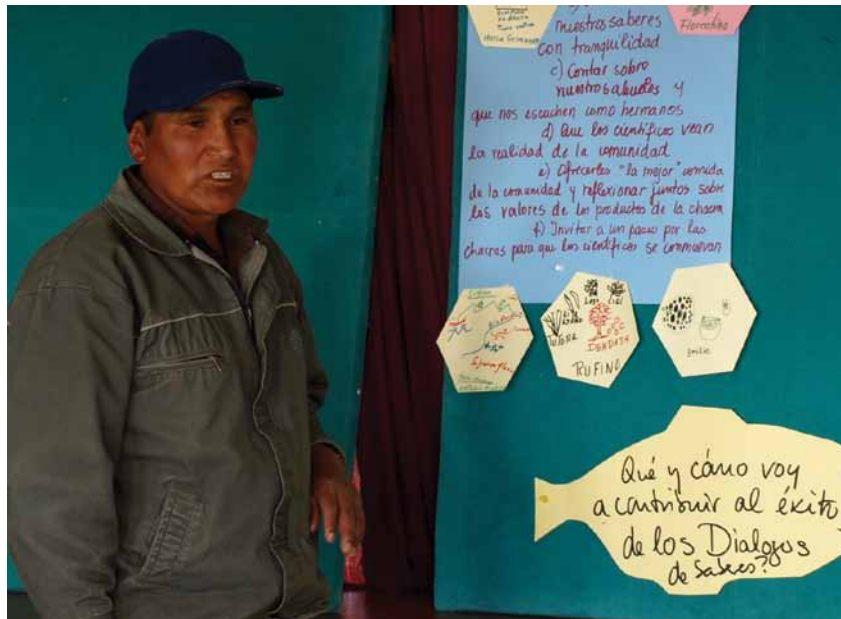 Florentino
nuestros saberes
con tranquilidad
c) Contar sobre
nuestros abuelos y
que nos escuchen como hermanos
d) Que los científicos vean
la realidad de la comunidad
e) Ofrecerles "la mejor" comida
de la comunidad y reflexionar juntos sobre
los valores de los productos de la chacra
f) Invitar a un paseo por las
chacras para que los científicos se conmuevan
ISHDATA
RUFINO
Emilio
Qué y cómo voy
a contribuir al éxito
de los Dialogos
de Saberes?